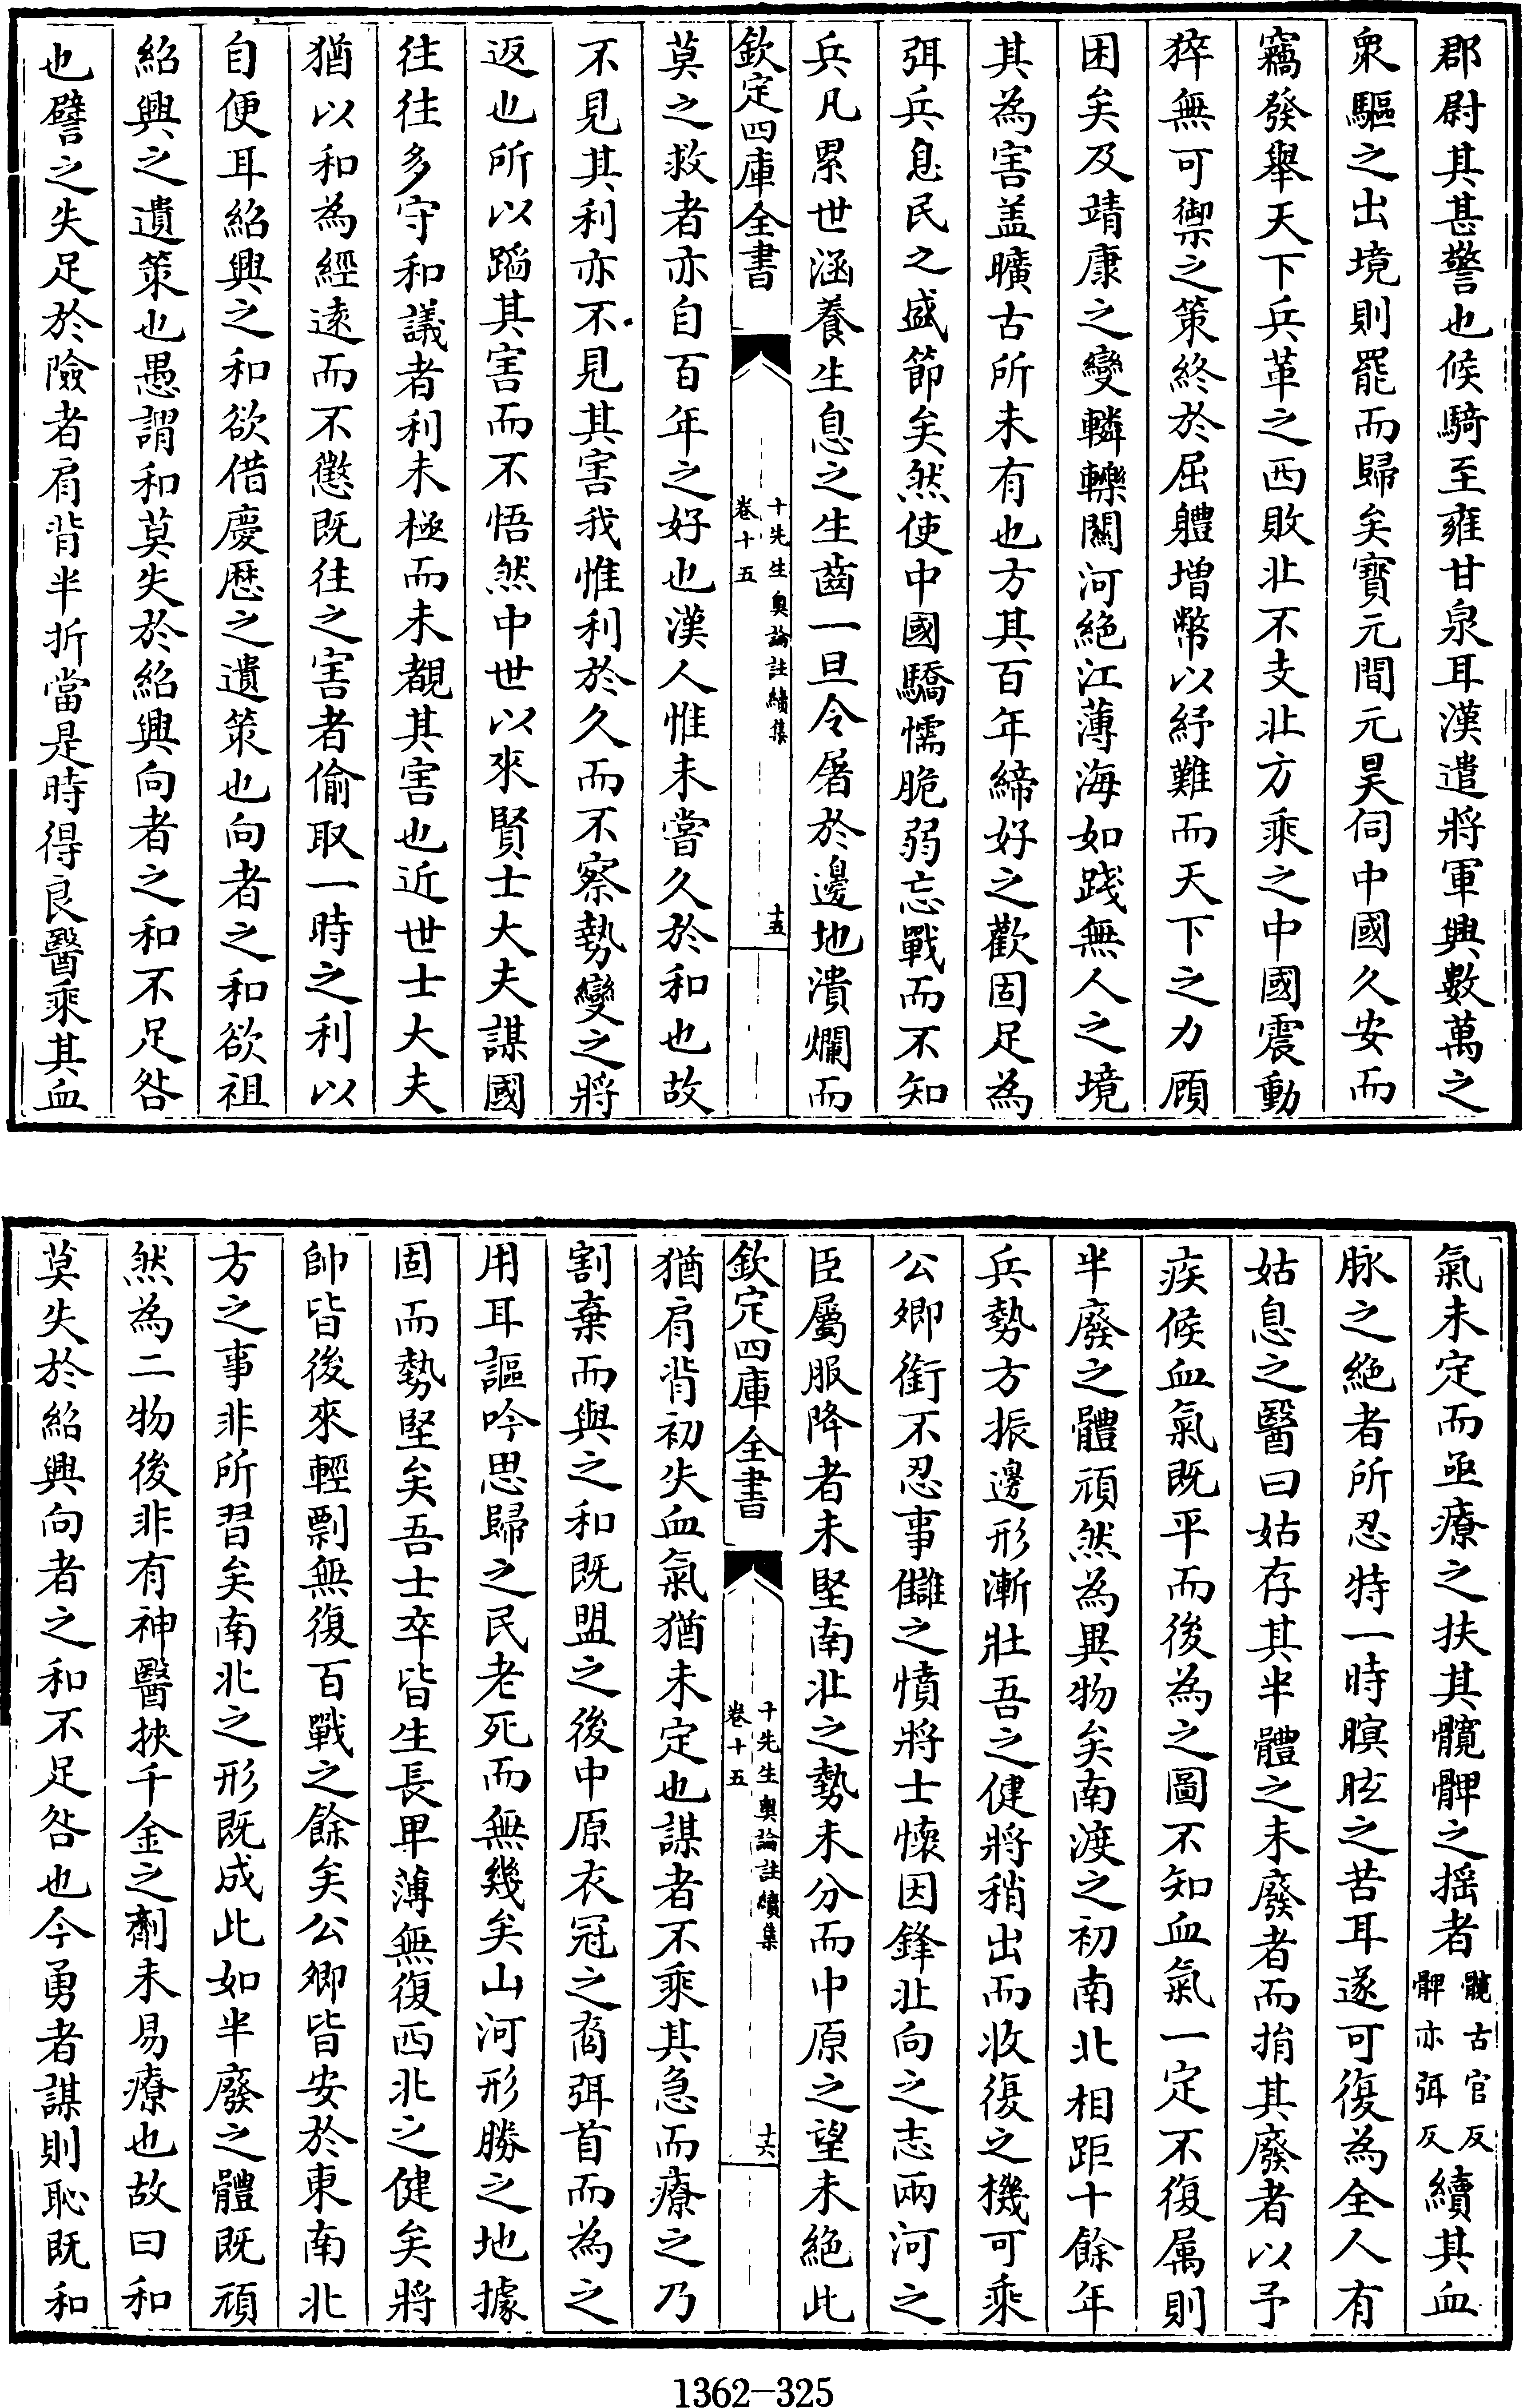 郡尉其甚警也候騎至雍甘泉耳漢遣將軍興數萬之
衆驅之出境則罷而歸矣寳元間元昊伺中國久安而
竊發舉天下兵革之西敗北不支北方乘之中國震動
猝無可禦之策終於屈體增幣以紓難而天下之力頋
困矣及靖康之變轔轢闗河絶江薄海如踐無人之境
其為害盖曠古所未有也方其百年締好之歡固足為
弭兵息民之盛節矣然使中國驕懦脆弱忘戰而不知
兵凡累世涵養生息之生齒一旦令屠於邊地潰爛而
欽定四庫全書
十先生奧論註續集
卷十五
十五
莫之救者亦自百年之好也漢人惟未嘗久於和也故
不見其利亦不見其害我惟利於久而不察勢變之將
返也所以蹈其害而不悟然中世以來賢士大夫謀國
往往多守和議者利未極而未覩其害也近世士大夫
猶以和為經逺而不懲既往之害者偷取一時之利以
自便耳紹興之和欲借慶厯之遺策也向者之和欲祖
紹興之遺策也愚謂和莫失於紹興向者之和不足咎
也譬之失足於險者肩背半折當是時得良醫乘其血
氣未定而亟療之扶其髖髀之揺者
髖古官反
髀亦弭反
續其血
脉之絶者所忍特一時瞑眩之苦耳遂可復為全人有
姑息之醫曰姑存其半體之未廢者而捐其廢者以予
疾候血氣既平而後為之圖不知血氣一定不復屬則
半廢之體頑然為異物矣南渡之初南北相距十餘年
兵勢方振邊形漸壯吾之健將稍出而收復之機可乘
公卿銜不忍事讎之憤將士懷因鋒北向之志兩河之
臣屬服降者未堅南北之勢未分而中原之望未絶此
欽定四庫全書
十先生奧論註續集
卷十五
十六
猶肩背初失血氣猶未定也謀者不乘其急而療之乃
割棄而與之和既盟之後中原衣冠之裔弭首而為之
用耳謳吟思歸之民老死而無幾矣山河形勝之地據
固而勢堅矣吾士卒皆生長卑薄無復西北之健矣將
帥皆後來輕剽無復百戰之餘矣公卿皆安於東南北
方之事非所習矣南北之形既成此如半廢之體既頑
然為二物後非有神醫挾千金之劑未易療也故曰和
莫失於紹興向者之和不足咎也今勇者謀則恥既和
1362-325